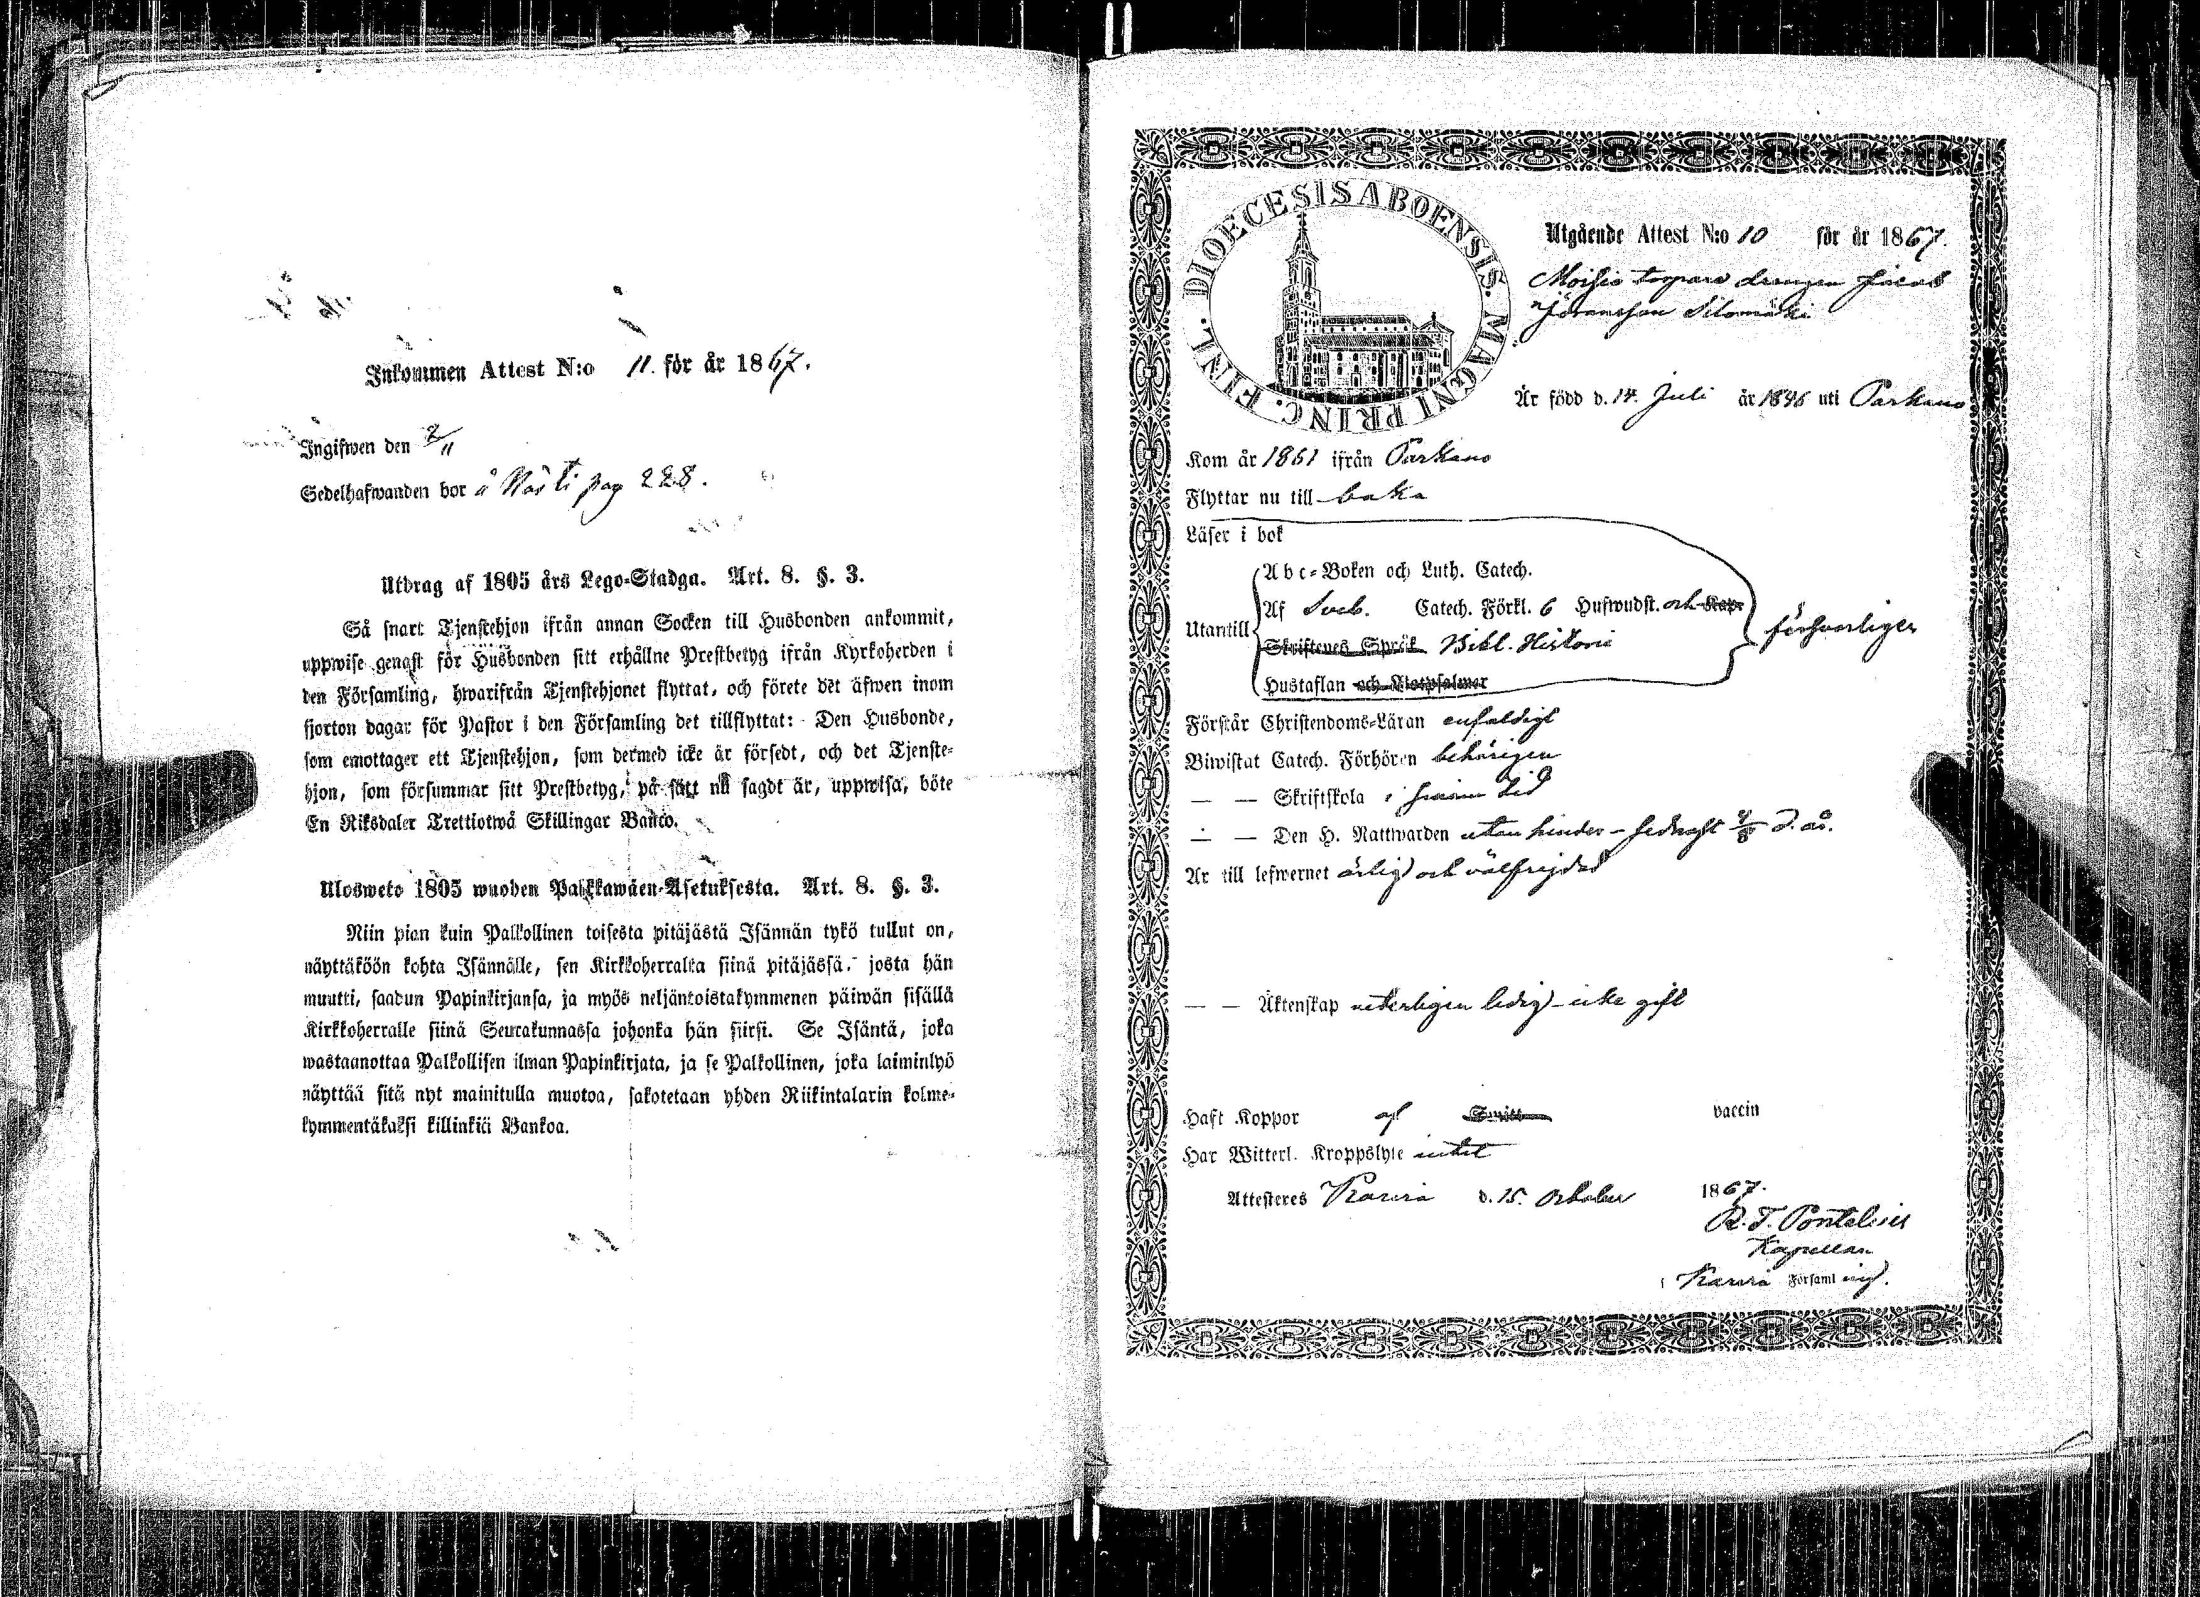 Inkommen Attest N:o 11. för år 1867.
Ingifwen den 2/11
Sedelhafwanden bor å Nästi pag 228.
Utdrag af 1805 års Lego-Stadga. Art. 8. §. 3.
Så snart Tjenstehjon ifrån annan Socken till Husbonden ankommit,
uppwise genast för Husbonden sitt erhållne Prestbetyg ifrån Kyrkoherden i
den Församling, hwarifrån Tjenstehjonet flyttat, och förete det äfwen inom
fjorton dagar för Pastor i den Församling det tillflyttat: Den Husbonde,
som emottager ett Tjenstehjon, som dermed icke är försedt, och det Tjenste-
hjon, som försummar sitt Prestbetyg, på sätt nu sagdt är, uppwisa, böte
En Riksdaler Trettiotwå Skillingar Banco.
Ulosweto 1805 wuoden Palkkawäen-Asetuksesta. Art. 8. §. 3.
Niin pian kuin Palkollinen toisesta pitäjästä Isännän tykö tullut on,
näyttäköön kohta Isännälle, sen Kirkkoherralta siinä pitäjässä, josta hän
muutti, saadun Papinkirjansa, ja myös neljäntoistakymmenen päiwän sisällä
Kirkkoherralle siinä Seurakunnassa johonka hän siirsi. Se Isäntä, joka
wastaanottaa Palkollisen ilman Papinkirjata, ja se Palkollinen, joka laiminlyö
näyttää sitä nyt mainitulla muotoa, sakotetaan yhden Riikintalarin kolme-
kymmentäkaksi killinkiä Bankoa.
DIOECESIS ABOENSIS. MAGNI PRINC. FINL.
Utgående Attest N:o 10 för år 1867.
Moisio torpare drengen Jacob
Göransson Silomäki
Är född d. 14. Juli år 1846 uti Parkano
Kom år 1861 ifrån Parkano
Flyttar nu till baka
Läser i bok
Abc-Boken och Luth. Catech.
Utantill Af Sveb. Catech. Förkl. 6 Hufwudst. och Kap. försvarligen
Skriftenes Språk Bibl. Historie
Hustaflan och Botpsalmer
Förstår Christendoms-Läran enfaldigt
Biwistat Catech. Förhören behörigen
— — Skriftskola i sinom tid
— — Den H. Nattwarden utan hinder - sednast 4/8 d. år.
Är till lefwernet ärlig och välfrejdad
— — Äktenskap veterligen ledig - icke gift
Haft Koppor af Smitt vaccin
Har Witterl. Kroppslyte intet
Attesteres Karvia d. 15. October 1867.
R. F. Pontelius
Kapellan
i Karvia Församling.